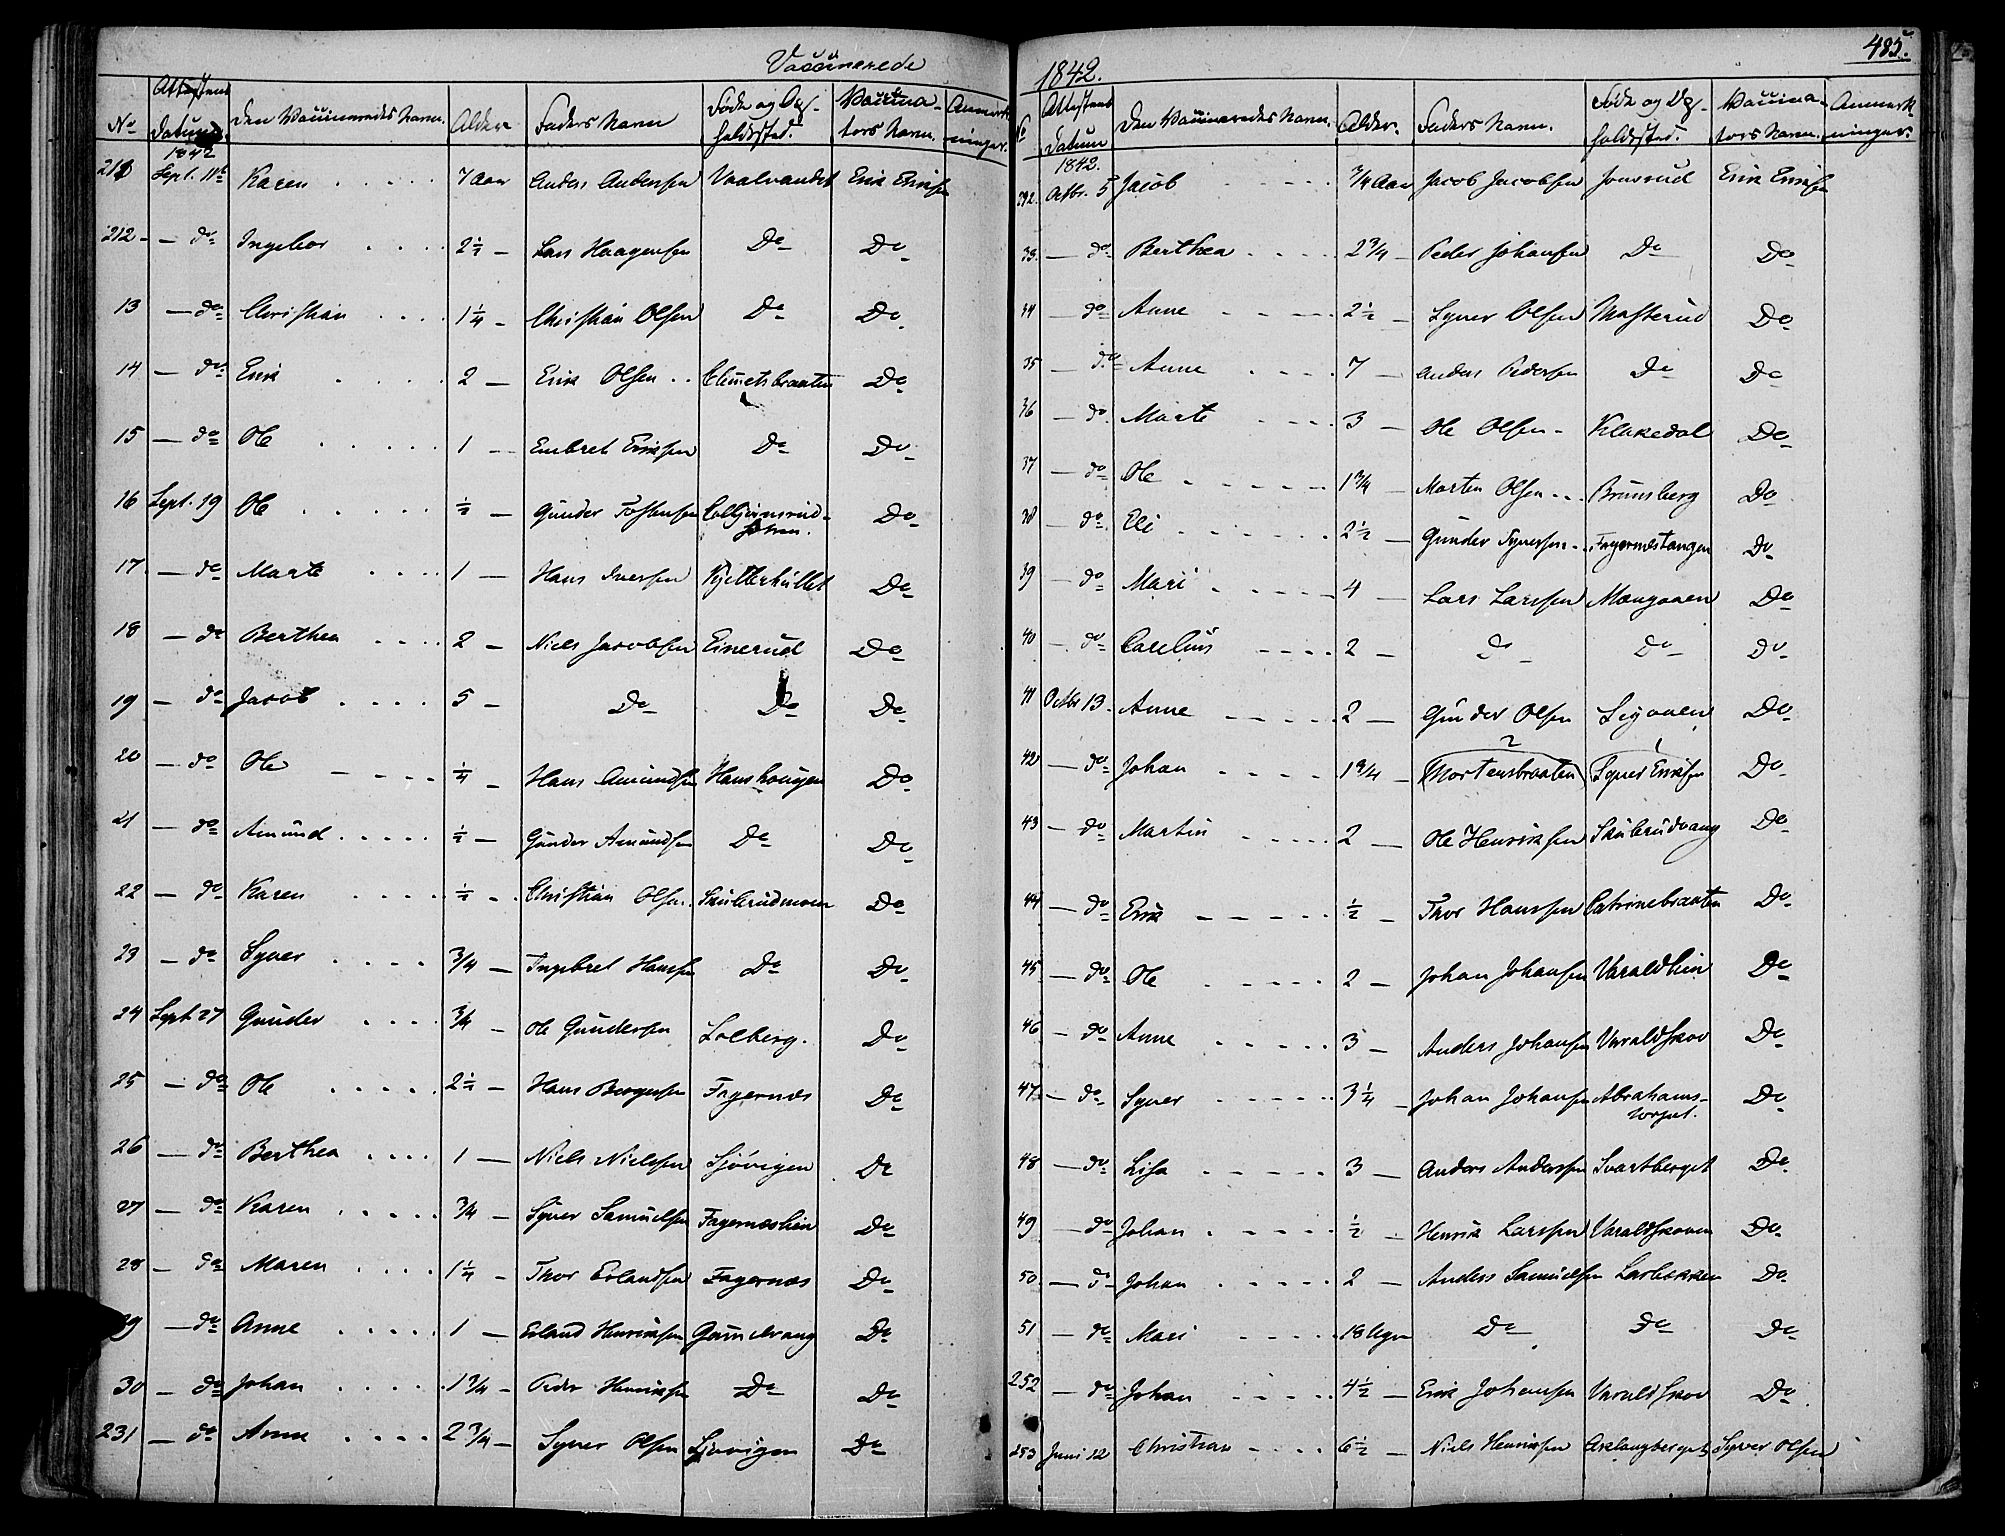 Vaccinerede
Attestens Datum
No Den Vaccineredes Navn. Alder Faders Navn Føde og Op- holdssted. Vaccina- tors Navn. Anmærk- ninger.
1842
211 Sept. 11te Karen 7 Aar Anders Andersen Varalvandet Erik Eriksen
212 - do Ingebor 2½ - Lars Haagensen Do Do
13 - do Christian 1¼ - Christian Olsen Do Do
14 - do Erik 2 - Erik Olsen Climetsbraaten Do
15 - do Ole 1 - Embret Eriksen Do Do
16 Sept. 19 Ole ½ - Gunder Tostensen Do
17 - do Marte 1 - Hans Iversen Kjetterhullet Do
18 - do Berthea 2 - Niels Jacobsen Einerud Do
19 - do Jacob 5 - Do Do Do
20 - do Ole ¼ - Hans Amundsen Hanshougen Do
21 - do Amund ½ - Gunder Amundsen Do Do
22 - do Karen ½ - Christian Olsen Skubrudmoen Do
23 - do Syver 3/4 - Ingebret Hansen Do Do
24 Sept 27 Gunder 3/4 - Ole Gundersen Solberg. Do
25 - do Ole 2½ - Hans Borgersen Fagernæs Do
26 - do Berthea 1 - Niels Nielssen Sjövigen Do
27 - do Karen 3/4 - Syver Samuelsen Fagernæslien Do
28 - do Maren 1¼ - Thor Erlandsen Fagernæs Do
29 - do Anne 1 - Erland Henriksen Do
30 - do Johan 1 3/4 - Peder Henriksen Do Do
231 - do Anne 2 3/4 - Syver Olsen Sjøvigen Do
485.
1842.
No Attestens Datum Den Vaccineredes Navn. Alder. Faders Navn. Føde og Op- holdssted. Vaccina- tors Navn. Anmærk- ninger.
1842.
232. Octbr. 5 Jacob 3/4 Aar Jacob Jacobsen Jonsrud Erik Eriksen
33. - do Berthea 2 3/4 - Peder Johansen Do Do
34 - do Anne 2½ - Syver Olsen Masterud Do
35 - do Anne 7 - Anders Pedersen Do Do
36 - do Marte 3 - Ole Olsen - Klakedal Do
37 - do Ole 1 3/4 - Morten Olsen Brunsberg Do
38 - do Eli 2½ - Gunder Syversen Fagernæstangen Do
39 - do Mari 4 - Lars Larssen Mangonen Do
40 - do Carelius 2 - Do Do Do
41 Octbr 13. Anne 2 - Gunder Olsen Sigonen Do
2 1
42 - do Johan 1 3/4 - (Mortensbraaten) (Syver Eriksen Do
43 - do Martin 2 - Ole Henriksen Skubrudvang Do
44 - do Erik ½ - Thor Hanssen Catrinebraaten Do
45 - do Ole 2 - Johan Johansen Varaldlien Do
46 - do Anne 3 - Anders Johansen Varaldskov Do
47 - do Syver 3¼ - Johan Johansen Abrahams- torpet. Do
48 - do Lisa 3 - Anders Anderssen Svartberget Do
49 - do Johan ½ - Henrik Larssen Varaldskoven Do
50. - do Johan 2 - Anders Samuelsen Larbekken Do
51 - do Mari 18 Uger Do Do Do
252 - do Johan 4½ - Erik Johansen Varaldskov Do
253 Juni 12 Christian 6½ - Niels Henriksen Aslangberget Syver Olsen